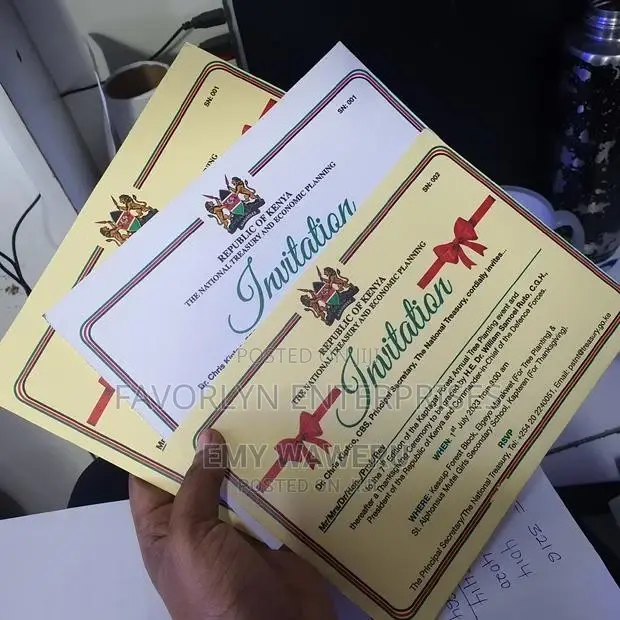 SN: 001
SN: 001
REPUBLIC OF KENYA
THE NATIONAL TREASURY AND ECONOMIC PLANNING
Invitation
Dr. Chris
SN: 002
REPUBLIC OF KENYA
THE NATIONAL TREASURY AND ECONOMIC PLANNING
Invitation
Dr. Chris Kiptoo, CBS, Principal Secretary, The National Treasury, cordially invites..
Mr/Mrs/Dr/Hon./Prof/
to the 7th Edition of the Kaptagat Forest Annual Tree Planting event and
thereafter a Thanksgiving Ceremony to be graced by H.E. Dr. William Samoei Ruto, C.G.H.,
President of the Republic of Kenya and Commander-in-Chief of the Defence Forces.
WHEN: 1st July 2023 from 9:00 am
WHERE: Keesup Forest Block, Elgeyo Marakwet (For Tree Planting) &
St. Alphonsus Mutei Girls Secondary School, Kapteren (For Thanksgiving).
RSVP
The Principal Secretary/The National Treasury, Tel: +254 20 2240051; Email: pstnt@treasury.go.ke
POSTED ON
FAVORLYN ENTERPRISES
EMY WAWERU
POSTED ON
= 3216
4014